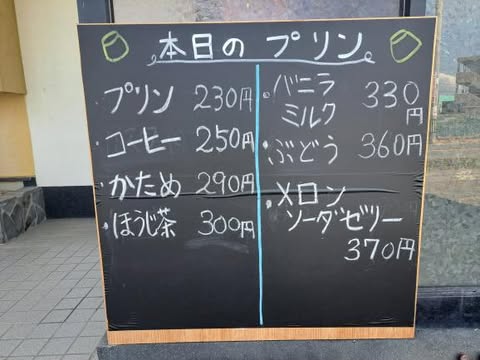 本日のプリン
・プリン 230円
・コーヒー 250円
・かため 290円
・ほうじ茶 300円
・バニラ
ミルク 330円
・ぶどう 360円
・メロン
ソーダゼリー
370円